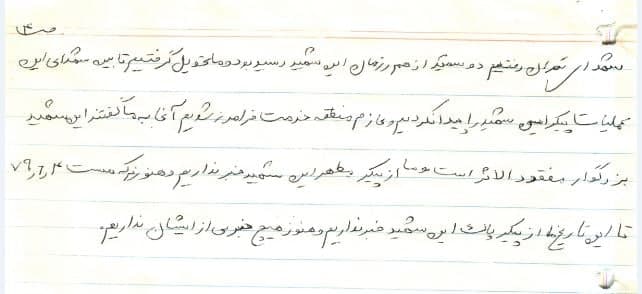 ص ۴
شهدای تهران رفتیم دو شهید از هم رزمان این شهید رسید بود ما تحویل گرفتیم تا بین شهدای این
عملیات پیکر این شهید را پیدا نکردیم و عازم منطقه خدمت فرامرز شدیم آنجا به ما گفتند این شهید
بزرگوار مفقود الاثر است و ما از پیکر مطهر این شهید خبر نداریم و هنوز که هست ۷۹
تا این تاریخ از پیکر پاک این شهید خبر نداریم و هنوز هیچ خبری از ایشان نداریم.